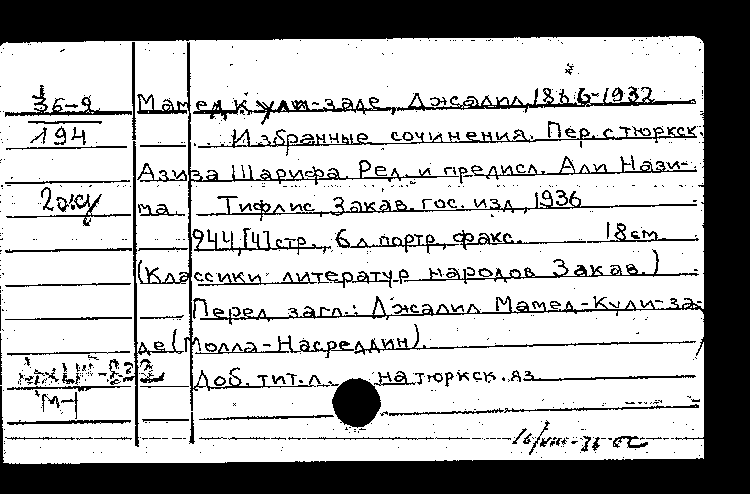 36-2
194
2 экз
Мамедкули-заде, Джалил, 1866-1932
Избранные сочинения. Пер. с тюркск.
Азиза Шарифа. Ред. и предисл. Али Нази-
ма. Тифлис, Закав. гос. изд., 1936
244, [4] стр., 6 л. портр., факс. 18 см.
(Классики литератур народов Закав.)
Перед загл.: Джалил Мамед-Кули-за-
де (Молла-Насреддин).
Доб. тит. л. на тюркск. яз.
М-1
16/VIII-36